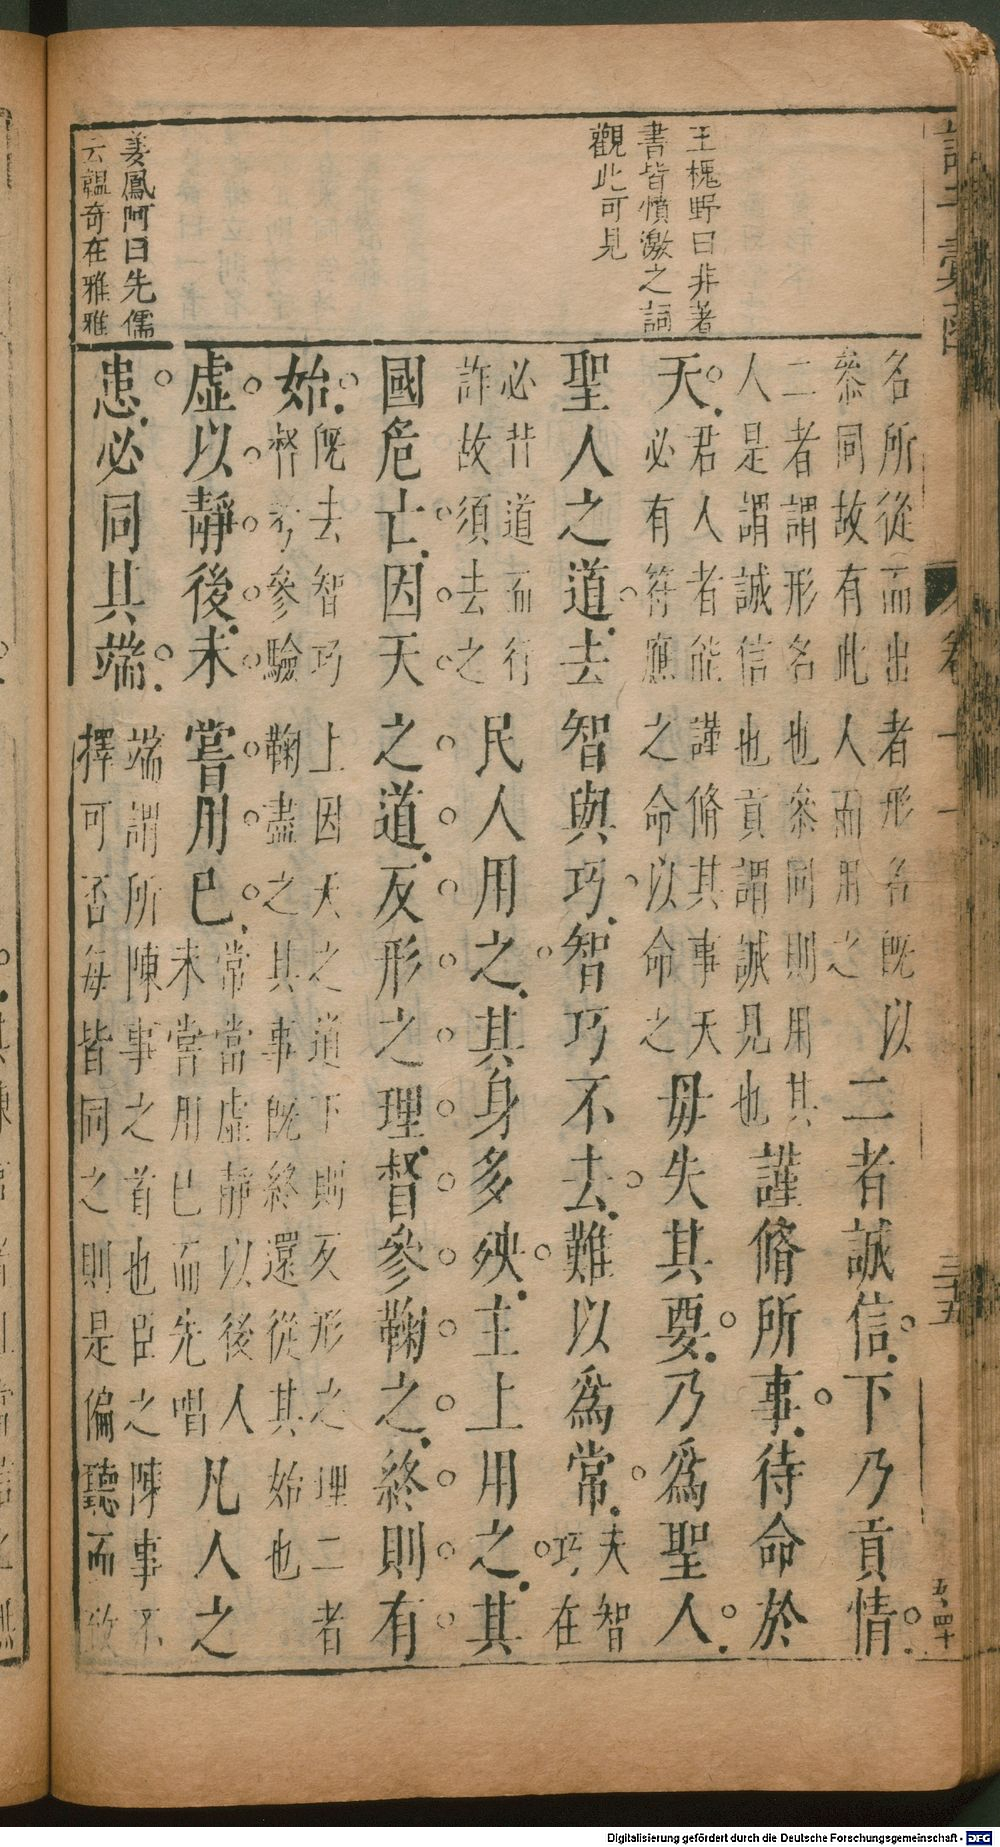 王槐野曰非著
書皆憤激之詞
觀此可見
姜鳳阿曰先儒
云韞奇在雅雅
名所從而出者形名既以
叅同故有此人而用之
二者誠信下乃貢情
二者謂形名也叅同則用其
人是謂誠信也貢謂誠見也
謹脩所事待命於
天
君人者能謹脩其事天
必有符應之命以命之
毋失其要乃爲聖人
聖人之道去智與巧智巧不去難以爲常
夫智
巧在
必背道而行
詐故須去之
民人用之其身多殃主上用之其
國危亡因天之道反形之理督參鞠之終則有
始
既去智巧上因天之道下則反形之理二者
督考參驗鞠盡之其事既終還從其始也
虛以靜後未嘗用已
常當虛靜以後人
未嘗用已而先唱
凡人之
患必同其端
端謂所陳事之首也臣之陳事不
擇可否每皆同之則是偏聽而致
三十五
五四十
Digitalisierung gefördert durch die Deutsche Forschungsgemeinschaft - DFG